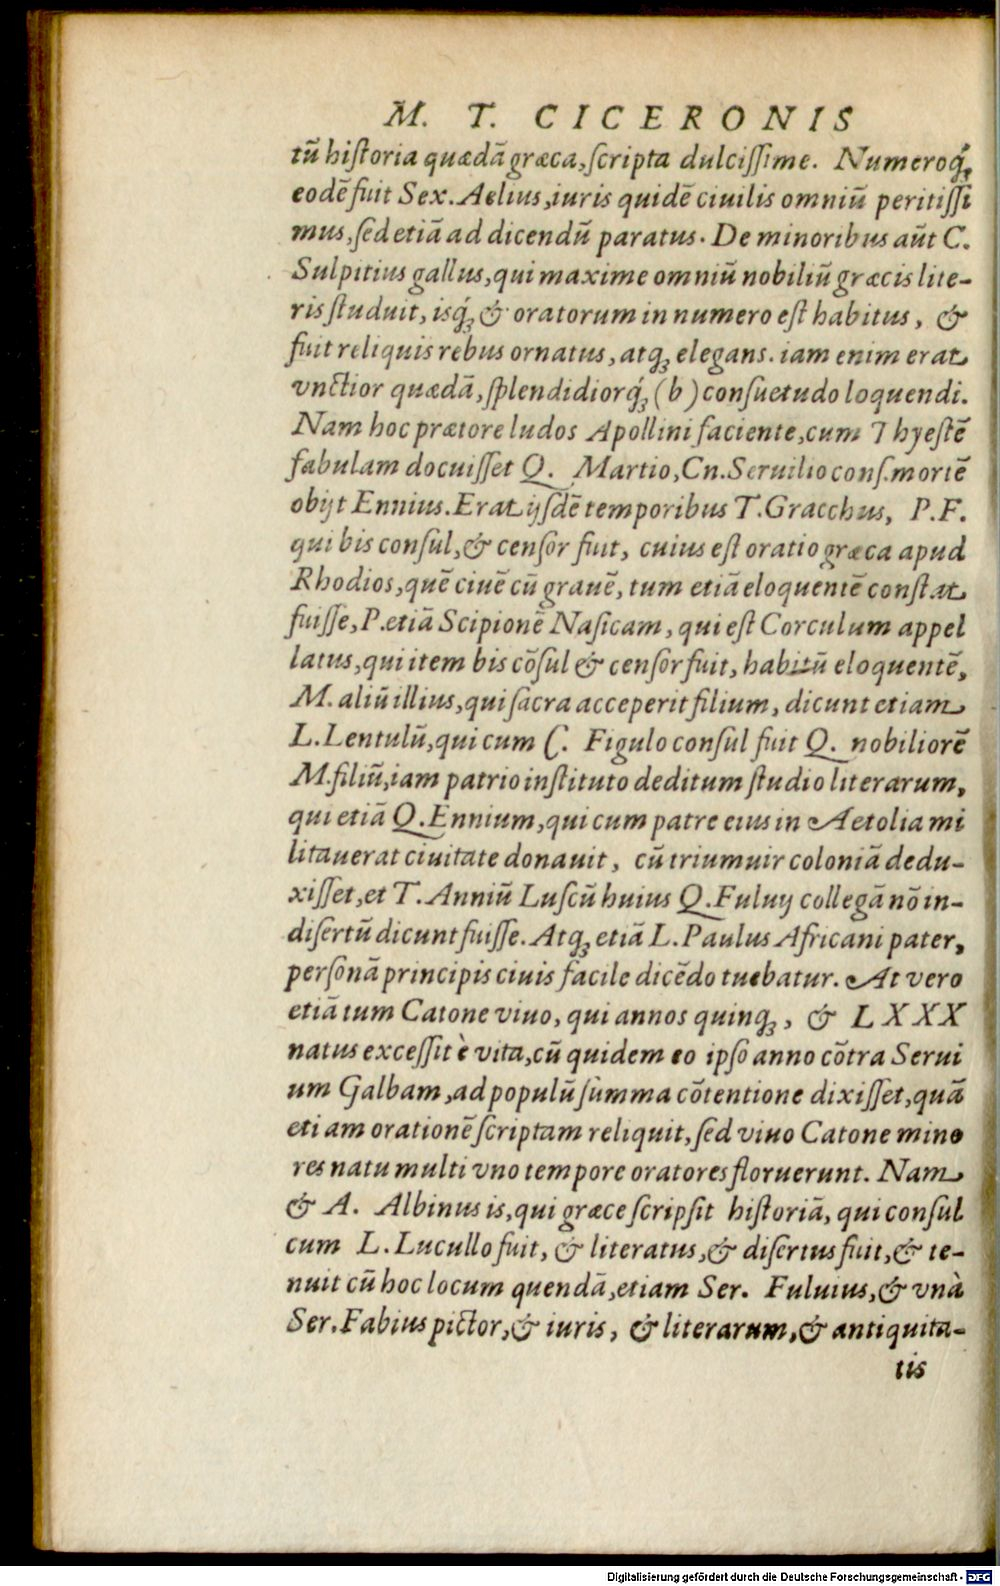 M. T. CICERONIS
tū hiſtoria quædā græca, ſcripta dulciſſime. Numeroq́ꝫ
eodē fuit Sex. Aelius, iuris quidē ciuilis omniū peritiſſi
mus, ſed etiā ad dicendū paratus. De minoribus aūt C.
Sulpitius gallus, qui maxime omniū nobiliū græcis lite-
ris ſtuduit, isq́ꝫ & oratorum in numero eſt habitus, &
fuit reliquis rebus ornatus, atqꝫ elegans. iam enim erat
vnctior quædā, ſplendidiorq́ꝫ (b) conſuetudo loquendi.
Nam hoc prætore ludos Apollini faciente, cum Thyeſtē
fabulam docuiſſet Q. Martio, Cn. Seruilio conſ. mortē
obijt Ennius. Erat ijſdē temporibus T. Gracchus, P. F.
qui bis conſul, & cenſor fuit, cuius eſt oratio græca apud
Rhodios, quē ciuē cū grauē, tum etiā eloquentē conſtat
fuiſſe, P. etiā Scipionē Naſicam, qui eſt Corculum appel
latus, qui item bis cōſul & cenſor fuit, habitū eloquentē,
M. aliū illius, qui ſacra acceperit filium, dicunt etiam
L. Lentulū, qui cum C. Figulo conſul fuit Q. nobiliorē
M. filiū, iam patrio inſtituto deditum ſtudio literarum,
qui etiā Q. Ennium, qui cum patre eius in Aetolia mi
litauerat ciuitate donauit, cū triumuir coloniā dedu-
xiſſet, et T. Anniū Luſcū huius Q. Fuluij collegā nō in-
diſertū dicunt fuiſſe. Atqꝫ etiā L. Paulus Africani pater,
perſonā principis ciuis facile dicēdo tuebatur. At vero
etiā tum Catone viuo, qui annos quinqꝫ, & LXXX
natus exceſſit è vita, cū quidem eo ipſo anno cōtra Serui
um Galbam, ad populū ſumma cōtentione dixiſſet, quā
etiam orationē ſcriptam reliquit, ſed viuo Catone mino
res natu multi vno tempore oratores floruerunt. Nam
& A. Albinus is, qui græce ſcripſit hiſtoriā, qui conſul
cum L. Lucullo fuit, & literatus, & diſertus fuit, & te-
nuit cū hoc locum quendā, etiam Ser. Fuluius, & vnà
Ser. Fabius pictor, & iuris, & literarum, & antiquita-
tis
Digitalisierung gefördert durch die Deutsche Forschungsgemeinschaft - DFG